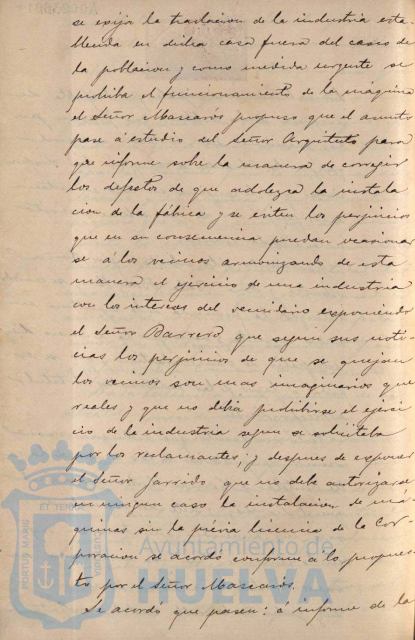 se exija la traslacion de la industria esta-
blecida en dicha casa fuera del casco de
la poblacion y como medida urgente se
prohiba el funcionamiento de la maquina
el Señor Mascarós propuso que el asunto
pase á estudio del Señor Arquitecto para
que informe sobre la manera de corregir
los defectos de que adolezca la instala
cion de la fábrica y se eviten los perjuicios
que en su consecuencia puedan ocasionar
se á los vecinos armonizando de esta
manera el ejercicio de una industria
con los intereses del vecindario exponiendo
el Señor Barrero que segun sus noti-
cias los perjuicios de que se quejan
los vecinos son mas imaginarios que
reales y que no debia prohibirse el ejerci-
cio de la industria segun se solicitaba
por los reclamantes: y despues de exponer
el Señor Garrido que no debe autorizarse
en ningun caso la instalacion de má-
quinas sin la prévia licencia de la Cor-
poracion se acordó conforme á lo propues-
to por el Señor Mascarós.
Se acordó que pasen: á informe de la
PORTUS MARIS
ET TERRAE
Ayuntamiento de
HUELVA